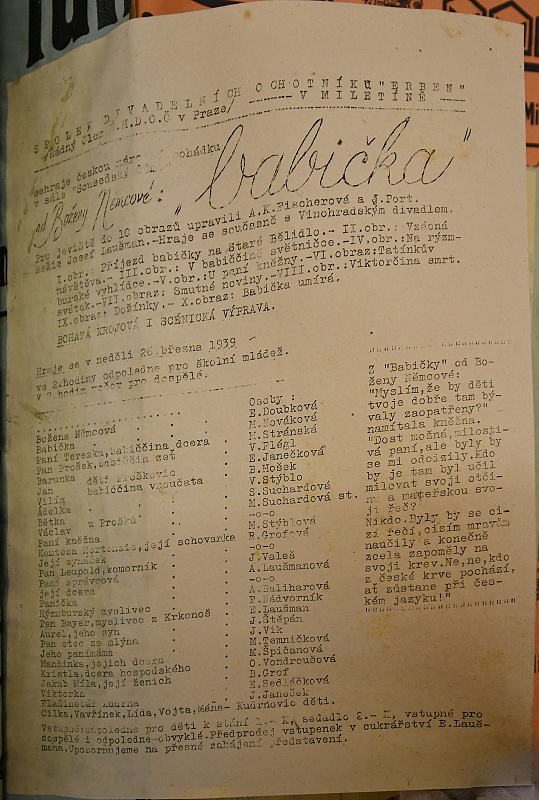 SPOLEK DIVADELNÍCH OCHOTNÍKU "ERBEN"
/Řádný člen Ú.M.D.O.Č v Praze/ V MILETÍNĚ
sehraje českou národ. pohádku
v sále "Sousedský dům"
od Boženy Němcové: "babička"
Pro jeviště do 10 obrazů upravili A.K.Fischerová a J.Port.
Režie Josef Laušman.-Hraje se současně s Vinohradským divadlem.
I.obr.: Příjezd babičky na Staré Bělidlo.- II.obr.: Vzácná
návštěva.- III.obr.: V babiččině světničce.-IV.obr.:Na rýzm-
burské vyhlídce.-V.obr.:U paní kněžny.-VI.obraz:Tatínkův
svátek.-VII.obraz: Smutné noviny.-VIII.obr.:Viktorčina smrt.
IX.obraz: Dožínky.- X.obraz: Babička umírá.
BOHATÁ KROJOVÁ I SCÉNICKÁ VÝPRAVA.
Hraje se v neděli 26.března 1939
ve 2.hodiny odpoledne pro školní mládež.
v hodin večer pro dospělé.
Osoby :
Božena Němcová E.Doubková
Babička M.Nováková
Paní Terezka,babiččina dcera M.Stránská
Pan Prošek,babiččin zeť V.Flégl
Barunka děti Proškovic E.Janečková
Jan babiččina vnoučata B.Hošek
Vilím V.Stýblo
Adelka S.Suchardová
Bětka u Prošků M.Suchardová st.
Václav -o-o
Paní kněžna M.Stýblová
Komtesa Hortensie,její schovanka R.Grofová
Její synáček -o-o
Pan Leupold,komorník J.Valeš
Paní správcová A.Laušmanová
její dcera -o-o
Panička A.Baliharová
Rýzmburský myslivec P.Nádvorník
Pan Bayer,myslivec z Krkonoš E.Laušman
Aurel,jeho syn J.Štěpán
Pan otec ze mlýna J.Vik
Jeho panímáma M.Temničková
Mančinka,jejich dcera M.Špičanová
Kristla,dcera hospodského O.Vondroušová
Jakub Míla,její ženich B.Grof
Viktorka E.Sedláčková
Flašinetář Kudrna J.Janeček
Cilka,Vavřínek,Lída,Vojta,Máňa- Kudrnovic děti.
Vstupné:odpoledne pro děti k stání 1.- K, sedadlo 2.- K, vstupné pro
dospělé i odpoledne obvyklé.Předprodej vstupenek v cukrářství E.Lauš-
mana.Upozorňujeme na přesné zahájení představení.
Z "Babičky" od Bo-
ženy Němcové:
"Myslím,že by děti
tvoje dobře tam bý-
valy zaopatřeny?"
namítala kněžna.
"Dost možná,milosti-
vá paní,ale byly by
se mi odcizily.Kdo
by je tam byl učil
milovat svoji otči-
nu a mateřskou svo-
ji řeč?
Nikdo.Byly by se ci-
zí řečí,cizím mravům
naučily a konečně
zcela zapoměly na
svoji krev.Ne,ne,kdo
z české krve pochází,
ať zůstane při čes-
kém jazyku!"